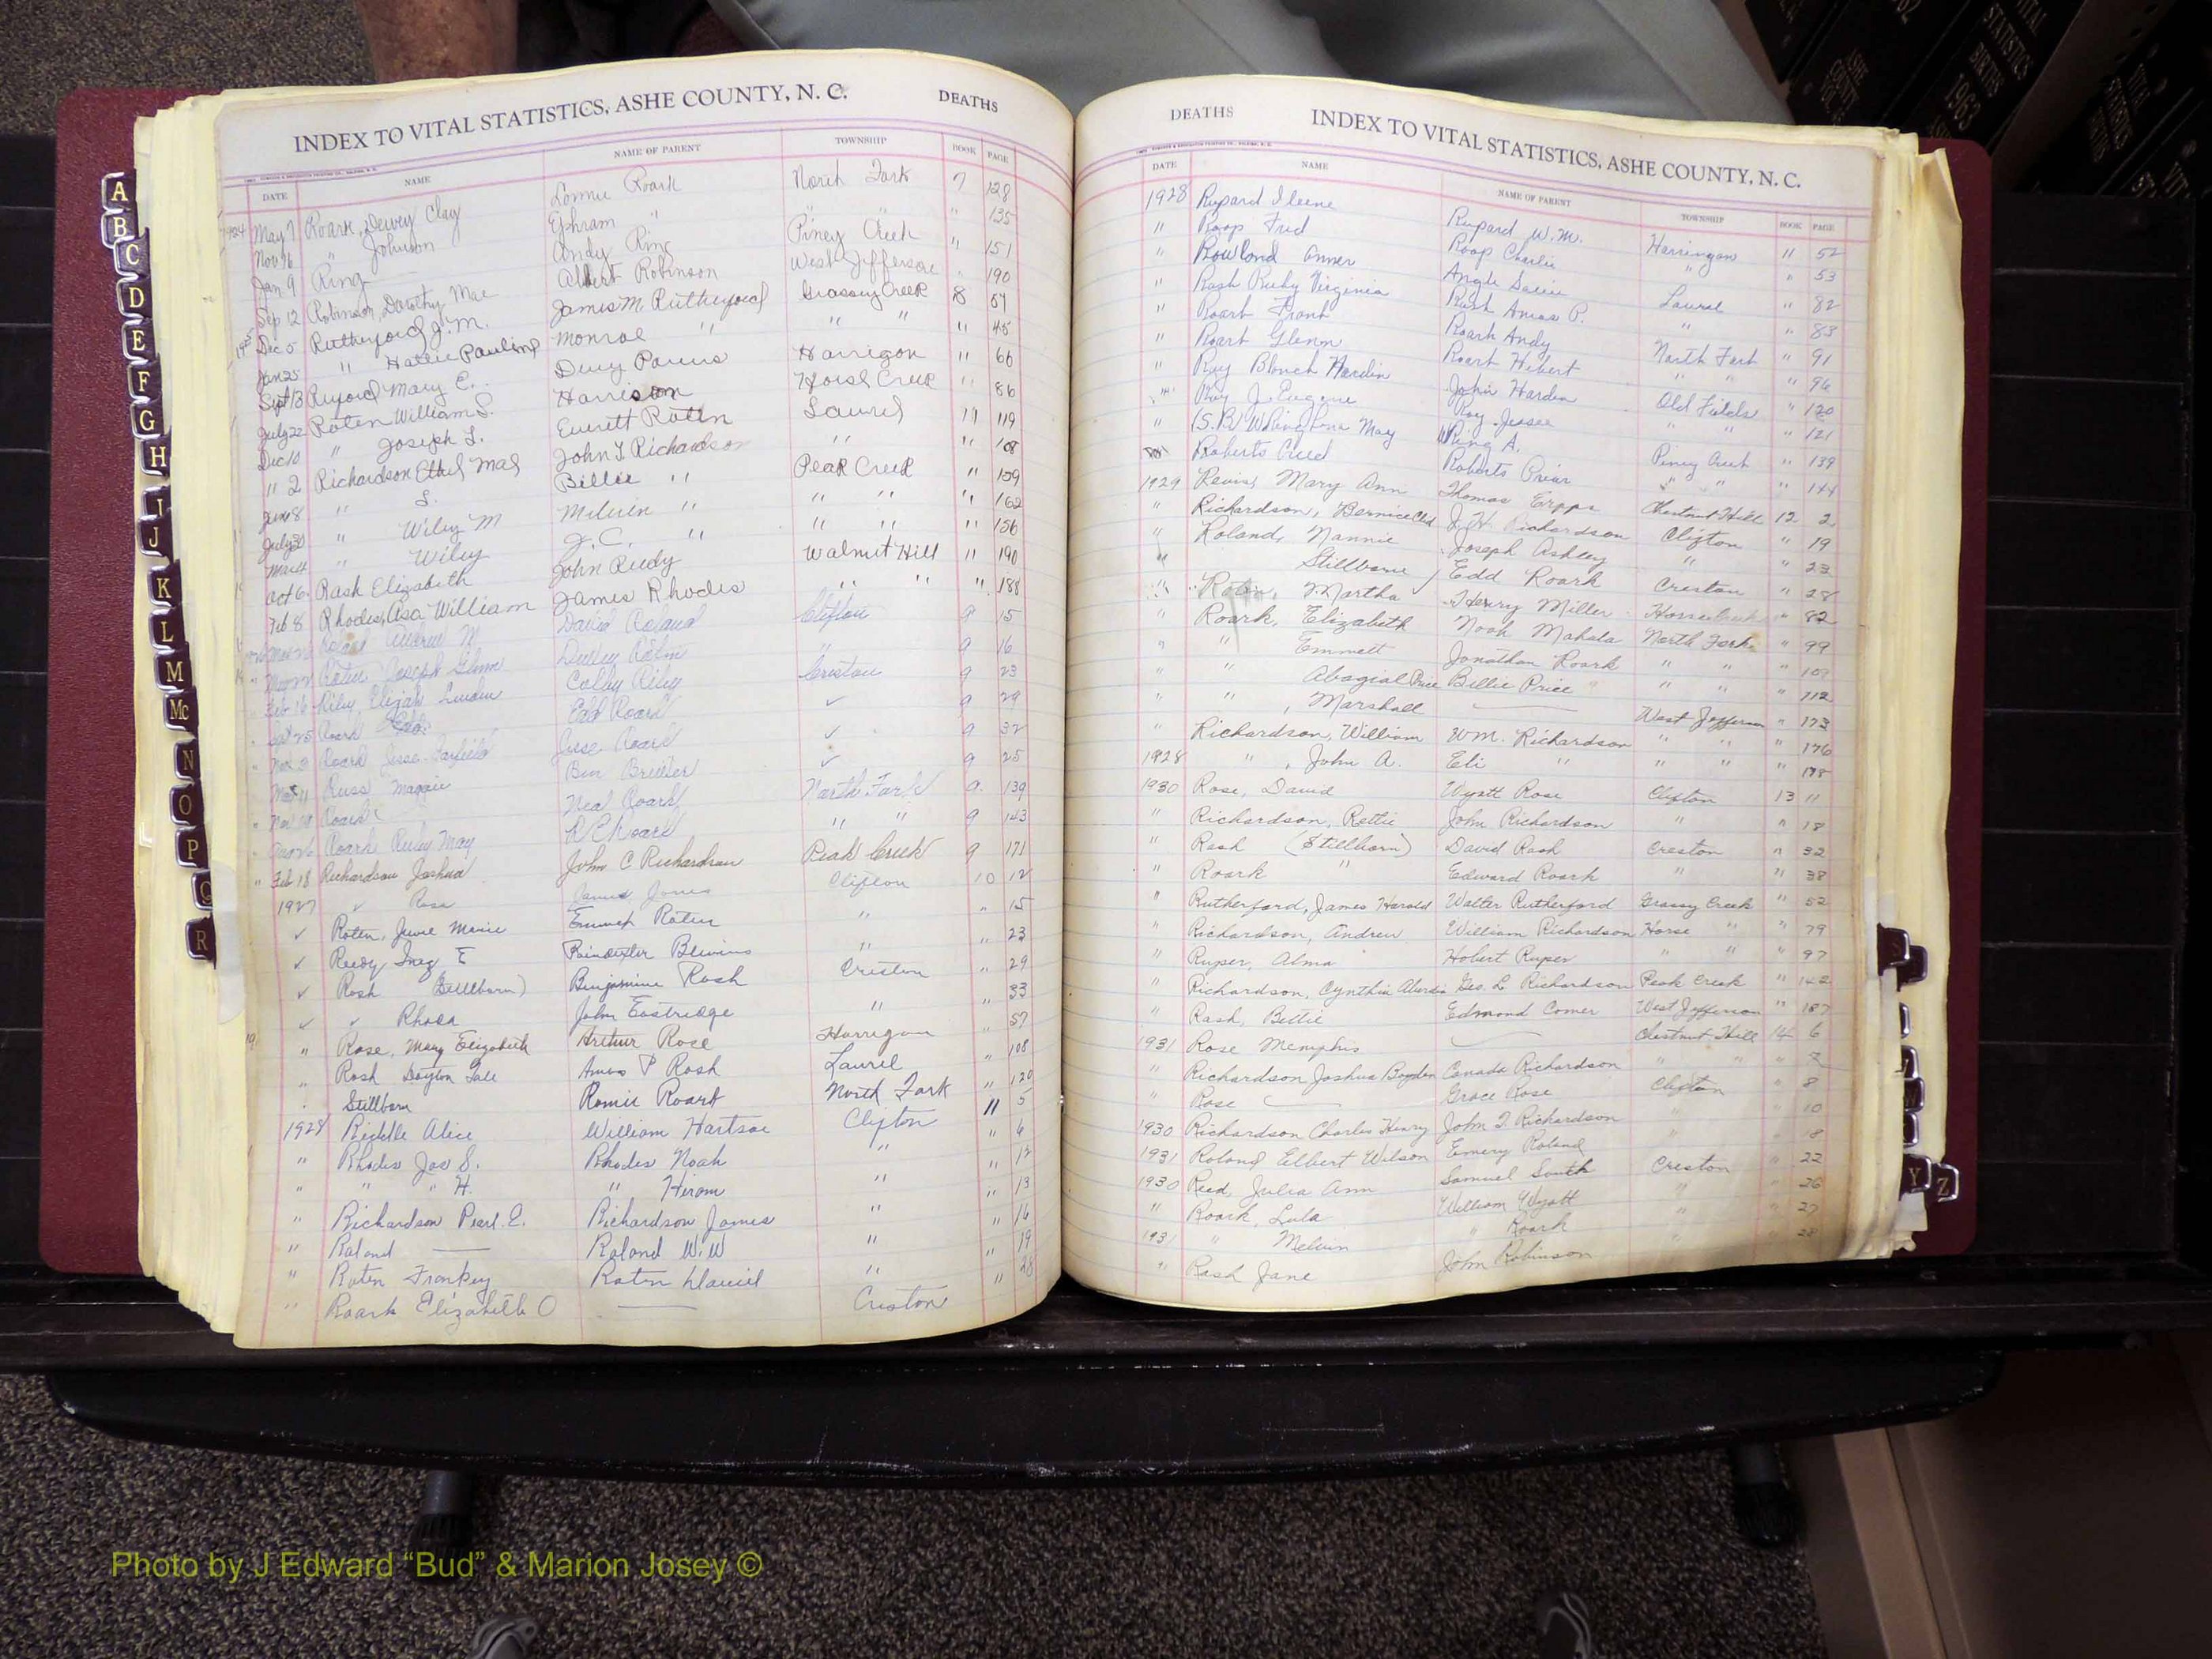 INDEX TO VITAL STATISTICS, ASHE COUNTY, N. C. DEATHS
DATE NAME NAME OF PARENT TOWNSHIP BOOK PAGE
1924 May 7 Roark, Dewey Clay Lonnie Roark North Fork 7 128
Nov 16 " Johnson Ephram " " " " 135
Jan 9 Ring Andy Ring Piney Creek " 151
Sep 12 Robinson, Dorothy Mae Albert Robinson West Jefferson " 190
1925 Dec 5 Rutherford J. M. James M Rutherford Grassy Creek 8
Jan 25 " Hattie Pauline Monroe " " " " 45
Sept 13 Mary E. Harrigon " 66
July 22 Roten William S. Harrison Horse Creek " 86
Dec 10 " Joseph L. Everett Roten Laurel " 119
" 2 Richardson Ethel Mae John T Richardson " " 108
" S. Billie " Peak Creek " 159
July " Wiley M Melvin " " " " 162
" Wiley J. C. " " " " 156
Oct 6 Rash Elizabeth John Reedy Walnut Hill " 190
Feb 8 Rhodes, Asa William James Rhodes " " " 188
David Roland Clifton 9 15
Roten Joseph Glenn " 9 16
Feb 16 Riley Elijah Colby Riley Creston 9 23
Roark Edd Roark ✓ 9 29
Roark Jesse Garfield Jesse Roark ✓ 9 32
Russ Maggie Ben ✓ 9 25
Roark Neal Roark North Fork 9 139
Roark Ruby May R C Roark " " 9 143
" Feb 18 Richardson Joshua John C Richardson Peak Creek 9 171
1927 ✓ Rosa James Jones Clifton 10 12
✓ Roten, Jewel Marie Roten " " 15
✓ Reedy Inez E Poindexter Blevins " " 23
✓ Rash (Stillborn) Benjamine Rash Creston " 29
✓ ✓ Rhoda John Eastridge " " 33
" Rose, Mary Elizabeth Arthur Rose Horrigan " 57
" Rash Dayton Amos P Rash Laurel " 108
Stillborn Romie Roark North Fork " 120
1928 Riddle Alice William Hartsoe Clifton 11 5
" Rhodes Joe S. Rhodes Noah " " 6
" " " H. " Hiram " " 12
" Richardson Pearl E. Richardson James " " 13
" Roland Roland W. W " " 16
" Roten Frankey Roten Daniel " " 19
" Roark Elizabeth O Creston " 28
DEATHS INDEX TO VITAL STATISTICS, ASHE COUNTY, N. C.
DATE NAME NAME OF PARENT TOWNSHIP BOOK PAGE
1928 Rupard Ileene Rupard W. M. Harringon 11 52
" Roop Fred Roop Charlie " " 53
" Rowland Anner Angle Laurel " 82
" Rash Ruby Virginia Rash Amos P. " " 83
" Roark Frank Roark Andy North Fork " 91
" Roark Glenn Roark Hebert " " " 96
" Ray Blanch Hardin John Harden Old Fields " 120
" Roy J. Eugene Roy Jessee " " " 121
" May Ring A. Piney Creek " 139
Roberts Creed Roberts Prior " " " 144
1929 Revis, Mary Ann Thomas Chestnut Hill 12 2
" Richardson, Bernice J. H. Richardson Clifton " 19
" Roland, Nannie Joseph Ashley " " 23
" Stillborne Edd Roark Creston " 28
" Martha Henry Miller Horse Creek " 82
" Roark, Elizabeth Noah Mahala North Fork " 99
" " Emmett Jonathan Roark " " " 109
" " Abagial Price Billie Price " " " 112
" " , Marshall West Jefferson " 173
" Richardson, William WM. Richardson " " " 176
1928 " , John A. Eli " " " " 178
1930 Rose, David Wyatt Rose Clifton 13 11
" Richardson, Rettie John Richardson " " 18
" Rash (Stillborn) David Rash Creston " 32
" Roark " Edward Roark " " 38
" Rutherford, James Harold Walter Rutherford Grassy Creek " 52
" Richardson, Andrew William Richardson Horse " " 79
" Ruper, Alma Hobert Ruper " " " 97
" Richardson, Cynthia Geo. L Richardson Peak Creek " 142
" Rash, Bettie Edmond Comer West Jefferson " 187
1931 Rose Memphis Chestnut Hill 14 6
" Richardson Joshua Boyden Canada Richardson " " " 7
" Rose Grace Rose Clifton " 8
1930 Richardson Charles Henry John T. Richardson " " 10
1931 Roland Elbert Wilson Emery Roland " " 18
1930 Reed, Julia Ann Samuel South Creston " 22
" Roark, Lula William Wyatt " " 26
1931 " Melvin " Roark " " 27
" Rash Jane John Robinson " " 28
A
B
C
D
E
F
G
H
I
J
K
L
M
Mc
N
O
P
Q
R
S
W
Y Z
VITAL STATISTICS BIRTHS 1963
Photo by J Edward “Bud” & Marion Josey ©